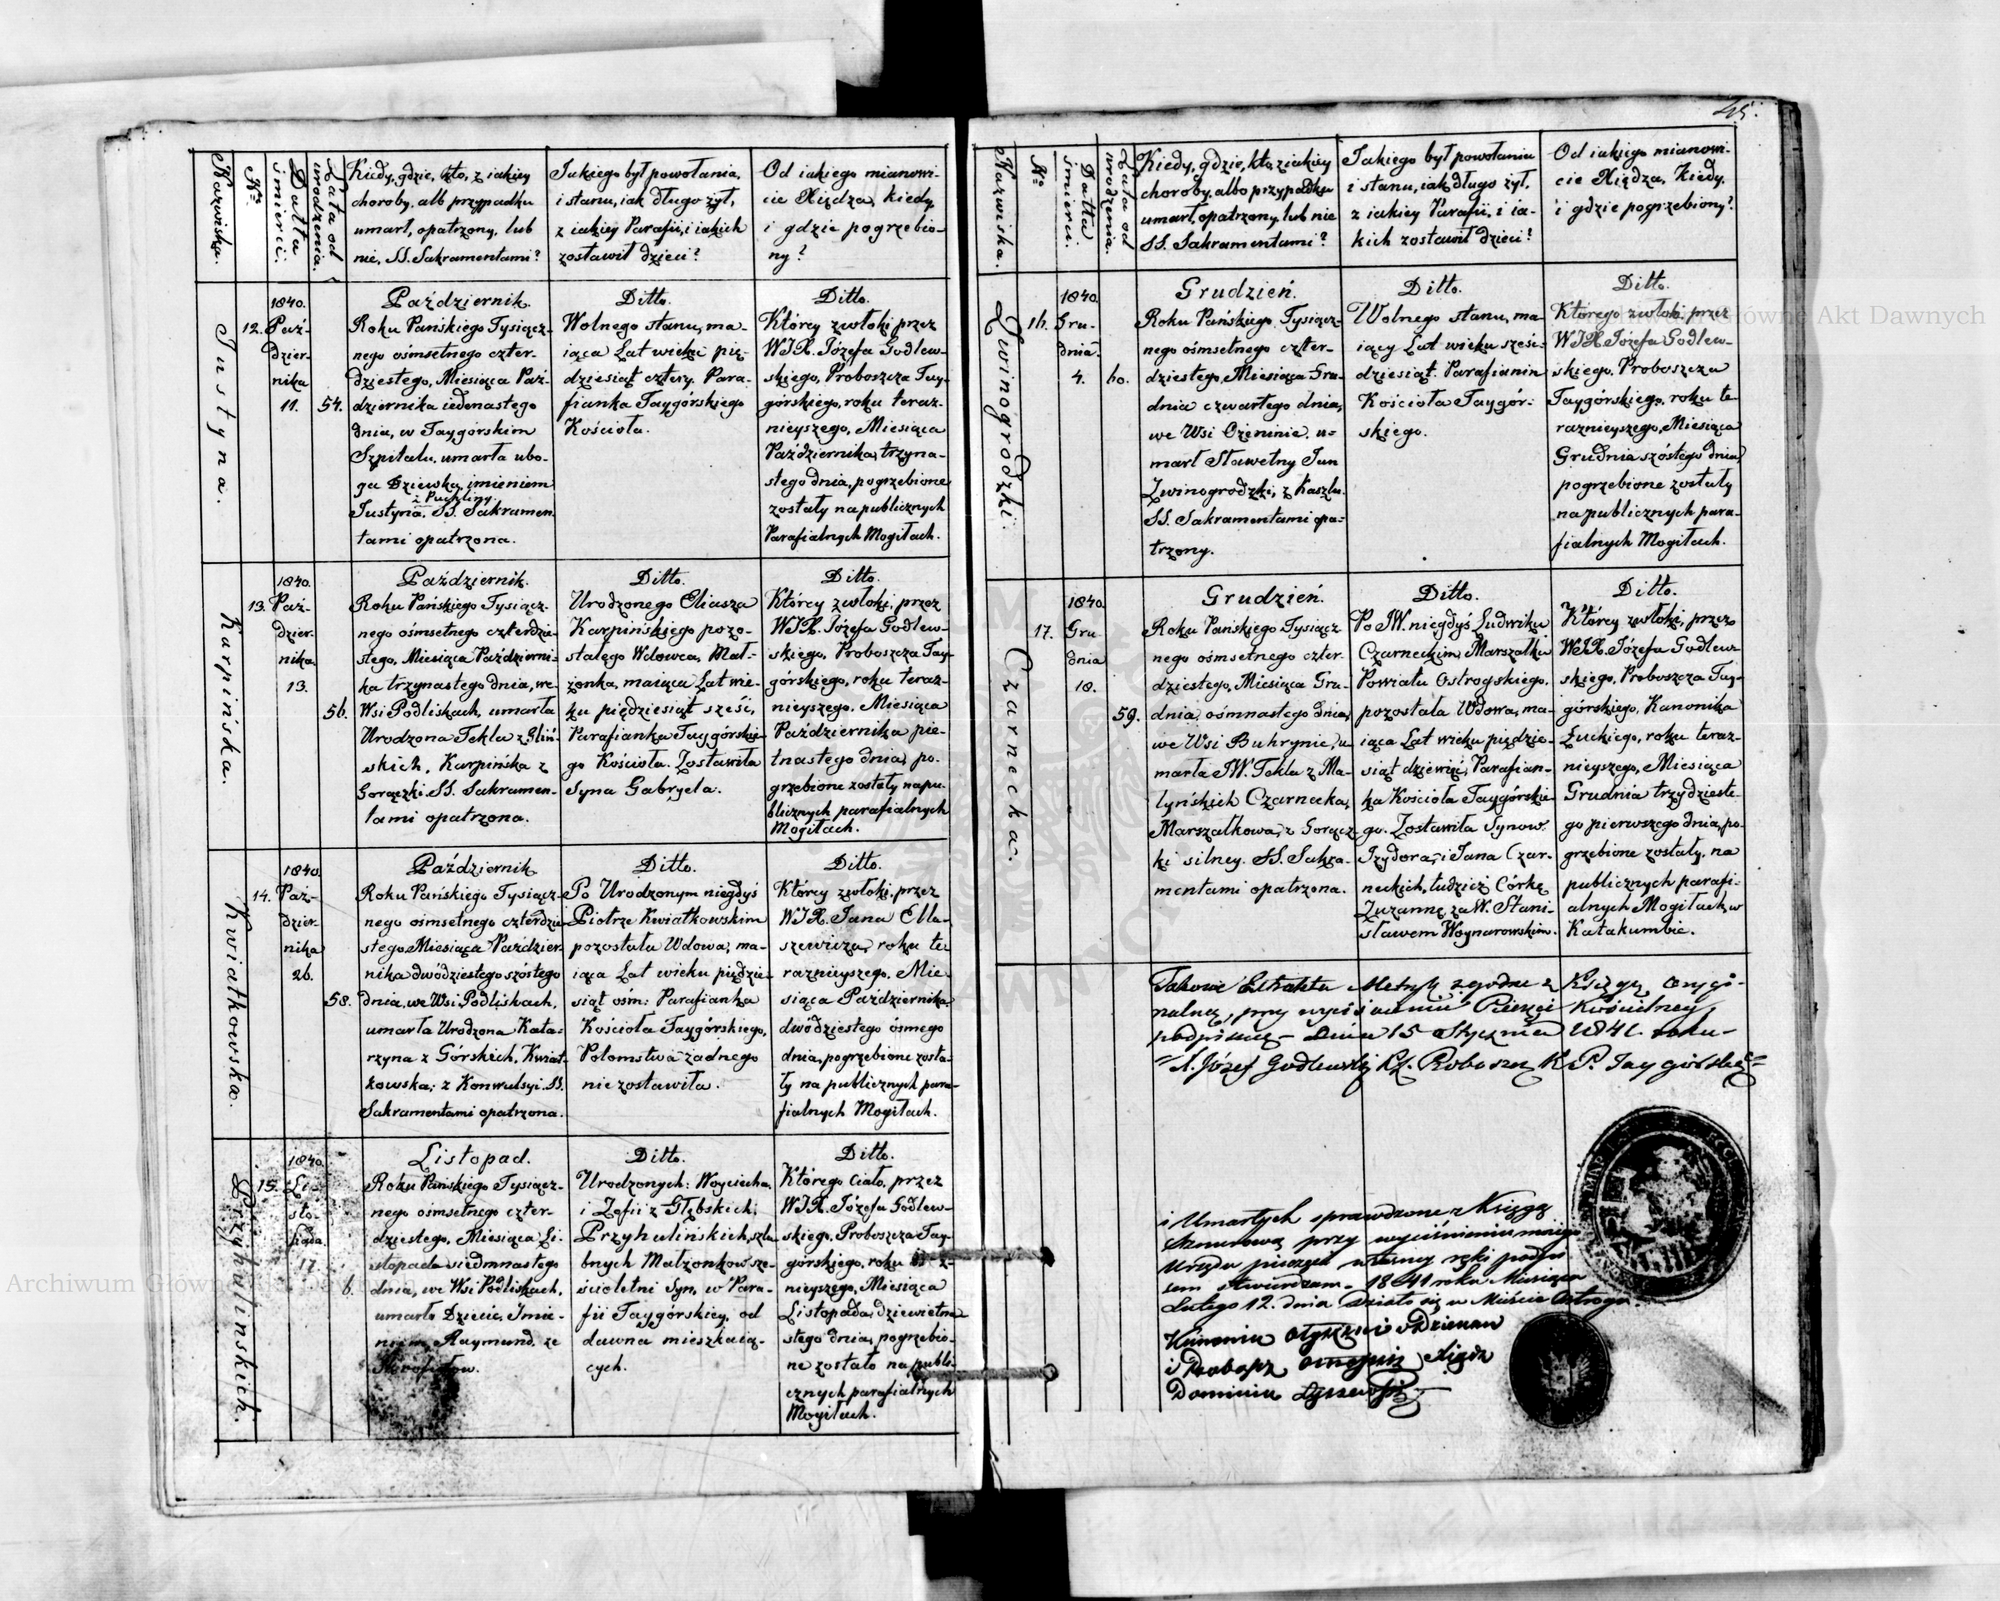 45.
Nazwiska.
No
Datta śmierci.
Lata od urodzenia.
Kiedy, gdzie, kto, z iakiey
choroby, alb przypadku
umarł, opatrzony, lub
nie, SS. Sakramentami?
Jakiego był powołania,
i stanu, iak długo żył,
z iakiey Parafii, i iakich
zostawił dzieci?
Od iakiego mianowi-
cie Xiędza, kiedy,
i gdzie pogrzebio-
ny?
Justyna.
12.
1840.
Paź-
dzier-
nika
11.
54.
Październik.
Roku Pańskiego Tysiącz-
nego ośmsetnego czter-
dziestego, Miesiąca Paź-
dziernika iedenastego
dnia, w Taygórskim
Szpitalu, umarła ubo-
ga Dziewka, imieniem
z Puchliny
Justyna. SS. Sakramen-
tami opatrzona.
Ditto.
Wolnego stanu, ma-
iąca Lat wieku pię-
dziesiąt cztery. Para-
fianka Taygórskiego
Kościoła.
Ditto.
Którey zwłoki przez
WJX. Józefa Godlew-
skiego, Proboszcza Tay-
górskiego, roku teraz-
nieyszego, Miesiąca
Października, trzyna-
stego dnia, pogrzebione
zostały na publicznych
Parafialnych Mogiłach.
Karpińska.
13.
1840.
Paź-
dzier-
nika
13.
56.
Październik.
Roku Pańskiego Tysiącz-
nego ośmsetnego czterdzie-
stego, Miesiąca Październi-
ka trzynastego dnia, we
Wsi Podliskach, umarła
Urodzona Tekla z Gliń-
skich, Karpińska z
Gorączki. SS. Sakramen-
tami opatrzona.
Ditto.
Urodzonego Eliasza
Karpińskiego pozo-
stałego Wdowca, Mał-
żonka, maiąca Lat wie-
ku pięćdziesiąt sześć,
Parafianka Taygórskie-
go Kościoła. Zostawiła
Syna Gabryela.
Ditto.
Którey zwłoki, przez
WJX. Józefa Godlew-
skiego, Proboszcza Tay-
górskiego, roku teraz-
nieyszego, Miesiąca
Października pię-
tnastego dnia, po-
grzebione zostały na pu-
blicznych parafialnych
Mogiłach.
Kwiatkowska.
14.
1840.
Paź-
dzier-
nika
26.
58.
Październik
Roku Pańskiego Tysiącz-
nego ośmsetnego czterdzie-
stego, Miesiąca Paździer-
nika dwódziestego szóstego
dnia, we Wsi Podliskach,
umarła Urodzona Kata-
rzyna z Górskich, Kwiat-
kowska; z Konwulsyi. SS.
Sakramentami opatrzona.
Ditto.
Po Urodzonym niegdyś
Piotrze Kwiatkowskim
pozostała Wdowa, ma-
iąca Lat wieku pięćdzie-
siąt ośm: Parafianka
Kościoła Taygórskiego,
Potomstwa żadnego
nie zostawiła.
Ditto.
Którey zwłoki, przez
WJX. Jana Elia-
szewicza, roku te-
raznieyszego, Mie-
siąca Października
dwódziestego ósmego
dnia, pogrzebione zosta-
ły na publicznych para-
fialnych Mogiłach.
Przyhulinskich.
15.
1840
Li-
sto-
pada
17
6.
Listopad.
Roku Pańskiego Tysiącz-
nego ośmsetnego czter-
dziestego, Miesiąca Li-
stopada siedmnastego
dnia, we Wsi Podliskach,
umarło Dziecie, Imie-
niem Raymund, ze
Skrofułow.
Ditto.
Urodzonych: Woyciecha,
i Zofii z Głębskich;
Przyhulińskich, szlu-
bnych Małżonkow sze-
ścioletni Syn, w Para-
fii Taygórskiey, od
dawna mieszkaią-
cych.
Ditto.
Którego ciało, przez
WJX. Józefa Godlew-
skiego, Proboszcza Tay-
górskiego, roku
nieyszego, Miesiąca
Listopada, dziewietna-
stego dnia, pogrzebio-
ne zostało na publi-
cznych parafialnych
Mogiłach.
Nazwiska.
No
Datta śmierci.
Lata od urodzenia.
Kiedy, gdzie, kto, z iakiey
choroby, albo przypadku
umarł, opatrzony, lub nie
SS. Sakramentami?
Jakiego był powołania
i stanu, iak długo żył,
z iakiey Parafii, i ia-
kich zostawił dzieci?
Od iakiego mianowi-
cie Xiędza, kiedy,
i gdzie pogrzebiony?
Zwinogrodzki.
16.
1840
Gru-
dnia.
4.
60.
Grudzień.
Roku Pańskiego Tysiącz-
nego ośmsetnego czter-
dziestego, Miesiąca Gru-
dnia czwartego dnia,
we Wsi Ożeninie, u-
marł Sławetny Jan
Zwinogrodzki, z Kaszlu.
SS. Sakramentami opa-
trzony.
Ditto.
Wolnego stanu, ma-
iący Lat wieku sześć-
dziesiąt. Parafianin
Kościoła Taygór-
skiego.
Ditto.
Którego zwłoki, przez
WJX. Józefa Godlew-
skiego, Proboszcza
Taygórskiego, roku te-
raznieyszego, Miesiąca
Grudnia szóstego dnia,
pogrzebione zostały
na publicznych para-
fialnych Mogiłach.
Czarnecka.
17.
1840
Gru
dnia
18.
59.
Grudzień.
Roku Pańskiego Tysiącz
nego ośmsetnego czter-
dziestego, Miesiąca Gru-
dnia, ośmnastego dnia,
we Wsi Buhrynie, u-
marła JW. Tekla z Ma-
lyńskich Czarnecka,
Marszałkowa, z Gorącz
ki silney. SS. Sakra-
mentami opatrzona.
Ditto.
Po JW. niegdyś Ludwiku
Czarneckim, Marszałku
Powiatu Ostrogskiego,
pozostała Wdowa, ma-
iąca Lat wieku pięćdzie-
siąt dziewięć, Parafian-
ka Kościoła Taygórskie-
go. Zostawiła Synow.
Izydora, i Jana Czar-
neckich, tudzież Córkę
Zuzannę, za W. Stani-
sławem Woynarowskim.
Ditto.
Którey zwłoki, przez
WJX. Józefa Godlew-
skiego, Proboszcza Tay-
górskiego, Kanonika
Łuckiego, roku teraz-
nieyszego, Miesiąca
Grudnia trzydzieste-
go pierwszego dnia, po-
grzebione zostały, na
publicznych parafi-
alnych Mogiłach, w
Katakumbie.
Takowe Extrakta Metryk zgodne z Księgą orygi-
nalną, przy wyciśnieniu Pieczęci Kościelney
podpisuię - Dnia 15 Stycznia 1841. roku -
X. Józef Godlewski Kł. Proboszcz K. P. Taygórski
i Umarłych sprawdzone z Księgą
sznurową przy wyciśnieniu mego
Urzędu pieczęci własney ręki podpi
sem stwierdzam - 1841 roku Miesiąca
Lutego 12. dnia Działo się w Mieście Ostrogu.
Dziekan
i Probosz Xiądz
Archiwum Główne Akt Dawnych
Archiwum Główne Akt Dawnych